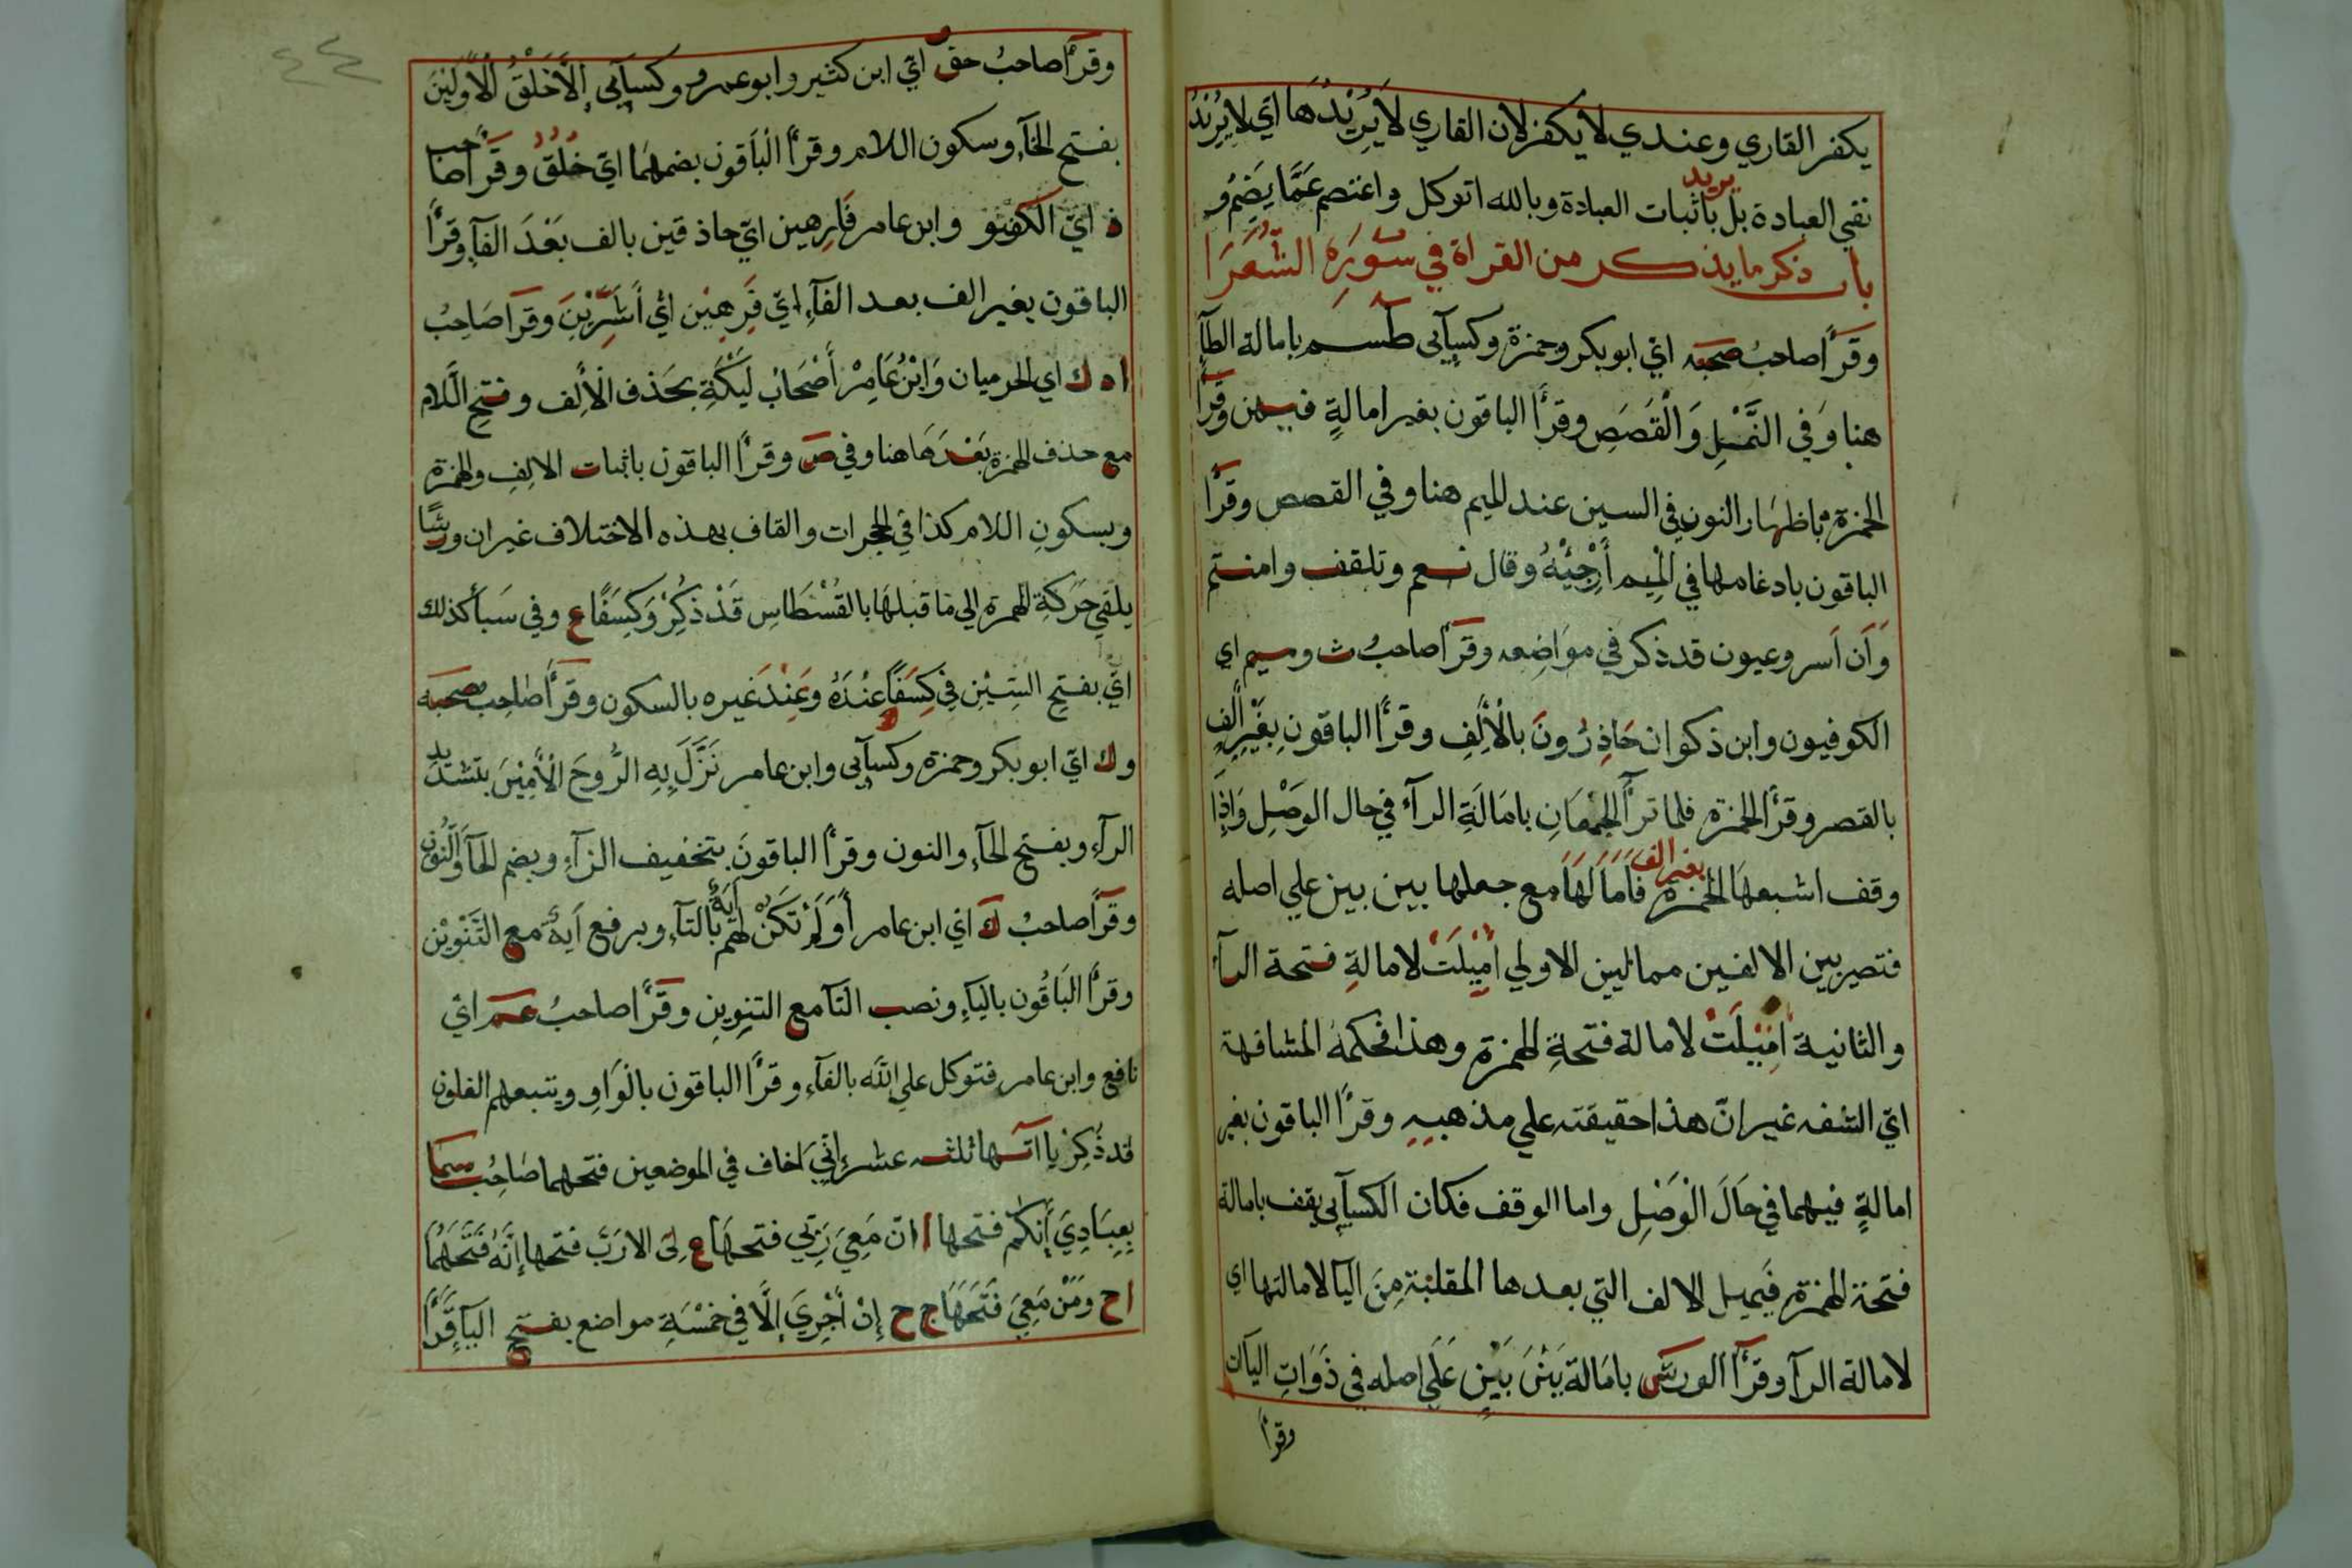 يكفر القاري وعندي لا يكفر لان القاري لَا يُرِيدُهَا اي لا يُرِيْدُ
نفي العبادة بل يريد باثبات العبادة وبالله اتوكل واعتصم عَمَّا يَضُم و
باب ذكر ما يذكر من القراة في سُورَةِ الشُّعَرَا
وقَرَأَ صاحبُ صحبه اي ابو بكر وحمزة وكسآيى طسم بامالة الطآ
هنا وَفي النَّمْلِ وَالْقَصَصِ وقرأ الباقون بغير امالةٍ فيهن وقرأ
الحمزة باظهَار النون في السين عند الميم هنا وفي القصص وقرأ
الباقون بادغامها في الْمِيم أَرْجِئْهُ وقال نعم وتلقف وامنتم
وَأن اَسر وعيون قد ذكر في مَوَاضِعه وقرَأ صاحبُ ث وسيم اي
الكوفيون وابن ذكوان حَاذِرُونَ بالْاَلِفِ وقرأ الباقون بِغَيْرِ اَلِفٍ
بالقصر وقرأ الحمزة فلما ترأَ الجمْعَانِ بامَالَةِ الرآء في حال الوَصْلِ وَاِذَا
وقف اشبعهَا الحمزة بغير الف فَامَا لَهَا مع جعلها بين بين علي اصله
فتصير بين الالفين ممالين الاولي أُمِيْلَتْ لامالةِ فتحة الرآء
والثانية اُمِيْلَتْ لامالة فتحةِ الهمزة وهذا تحكمهُ المشافهة
ايّ الشفه غير انّ هذا حقيقته علي مذهبهِ وقرأ الباقون بغير
امالةٍ فيهما في حَالَ الْوَصْلِ واما الوقف فكان الكسآيى يقف بامالة
فتحة الهمزة فَيميل الالف التي بعدها المقلبَة مِنَ اليآ لامالتها اي
لامالة الرآ وقرَأ الورش بامَالة بَيْنَ بَيْنٍ عَلَي اصله في ذَوَاتِ اليآت
وقرأ
٤٤
وقرَأ صاحبُ حق ايّ ابن كثير وابو عمرو وكسآيى إلاَّ خَلْقُ الْاَوَّلِيْنَ
بفتح الخآء وسكون اللام وقرأ الْبَاقون بضمهمَا ايّ خُلُقُ وقَرَأ صاحب
ذ ايّ الكوفيو وابن عامر فَارِهين ايّ حاذقين بالف بَعْدَ الفآء وقرأ
الباقون بغير الف بعد الفآء ايّ فَرِهِيْن ايّ أَشَرِّيْنَ وقَرَأ صَاحِبُ
اد ك اي الحرميان وَابْنُ عَامِرْ أَصْحَابُ لَيْكَةِ بحَذف الْأَلِف وفتح اللَّام
مع حذف الهمزة بَعْدَهَا هنا وفي ص وقرأ الباقون باثبات الالِفِ والهمزة
وبسكونِ اللام كذا في الحجرات والقاف بهذه الاختلاف غير ان ورشًا
يلقي حَرَكَةِ الهمزة الي مَا قبلهَا بالقُسْطَاسِ قَدْ ذُكِرْ وَكِسَفًا ع وفي سَبأ كذلك
ايّ بفتح السِّيْنِ فِي كِسَفًا عنْدَهُ وعَنْدَ غيره بالسكون وقرَأَ صَاحِب صحبه
وك ايّ ابو بكر وحمزة وكسآيى وابن عامر نَزَّلَ بِهِ الرُّوحَ الْأَمِيْنَ بتشديد
الزآء وبفتح الحآء والنون وقرأ الباقونَ بتخفيف الزآء وبضم الحآ وَالنُّون
وقرَأ صاحبُ كَ ايّ ابن عامر أَوَ لَمْ تَكُنْ لهم آيَةٌ بالتآء وبرفع آيةٌ مع التَّنْوِيْن
وقرأ الْبَاقُون باليآء ونصب التآ مع التنوِينِ وقَرَأ صاحبُ عَم ايّ
نافع وابن عامر فتوكل علي الله بالفآء وقرأ الباقون بالْوَاوِ ويتبعهم الغاون
قد ذُكِرْ يا اتها ثلثه عشر إِنِّيَ اَخاف في الموضعين فتحهما صَاحِبُ سَمَا
بِعِبَادِيَ أَنَّكمْ فتحها ا انّ مَعِيَ رَبِّي فتحهَا ع لِىَ الا رَبَّ فتحها إِنَّهُ فَتَحَهُمَا
اح ومَنْ مَعِيَ فَتَحَهَا ج ح إِنْ أَجْرِيَ إِلَّا فِي خَمْسَةِ مواضع بفتح اليآء قرَأ